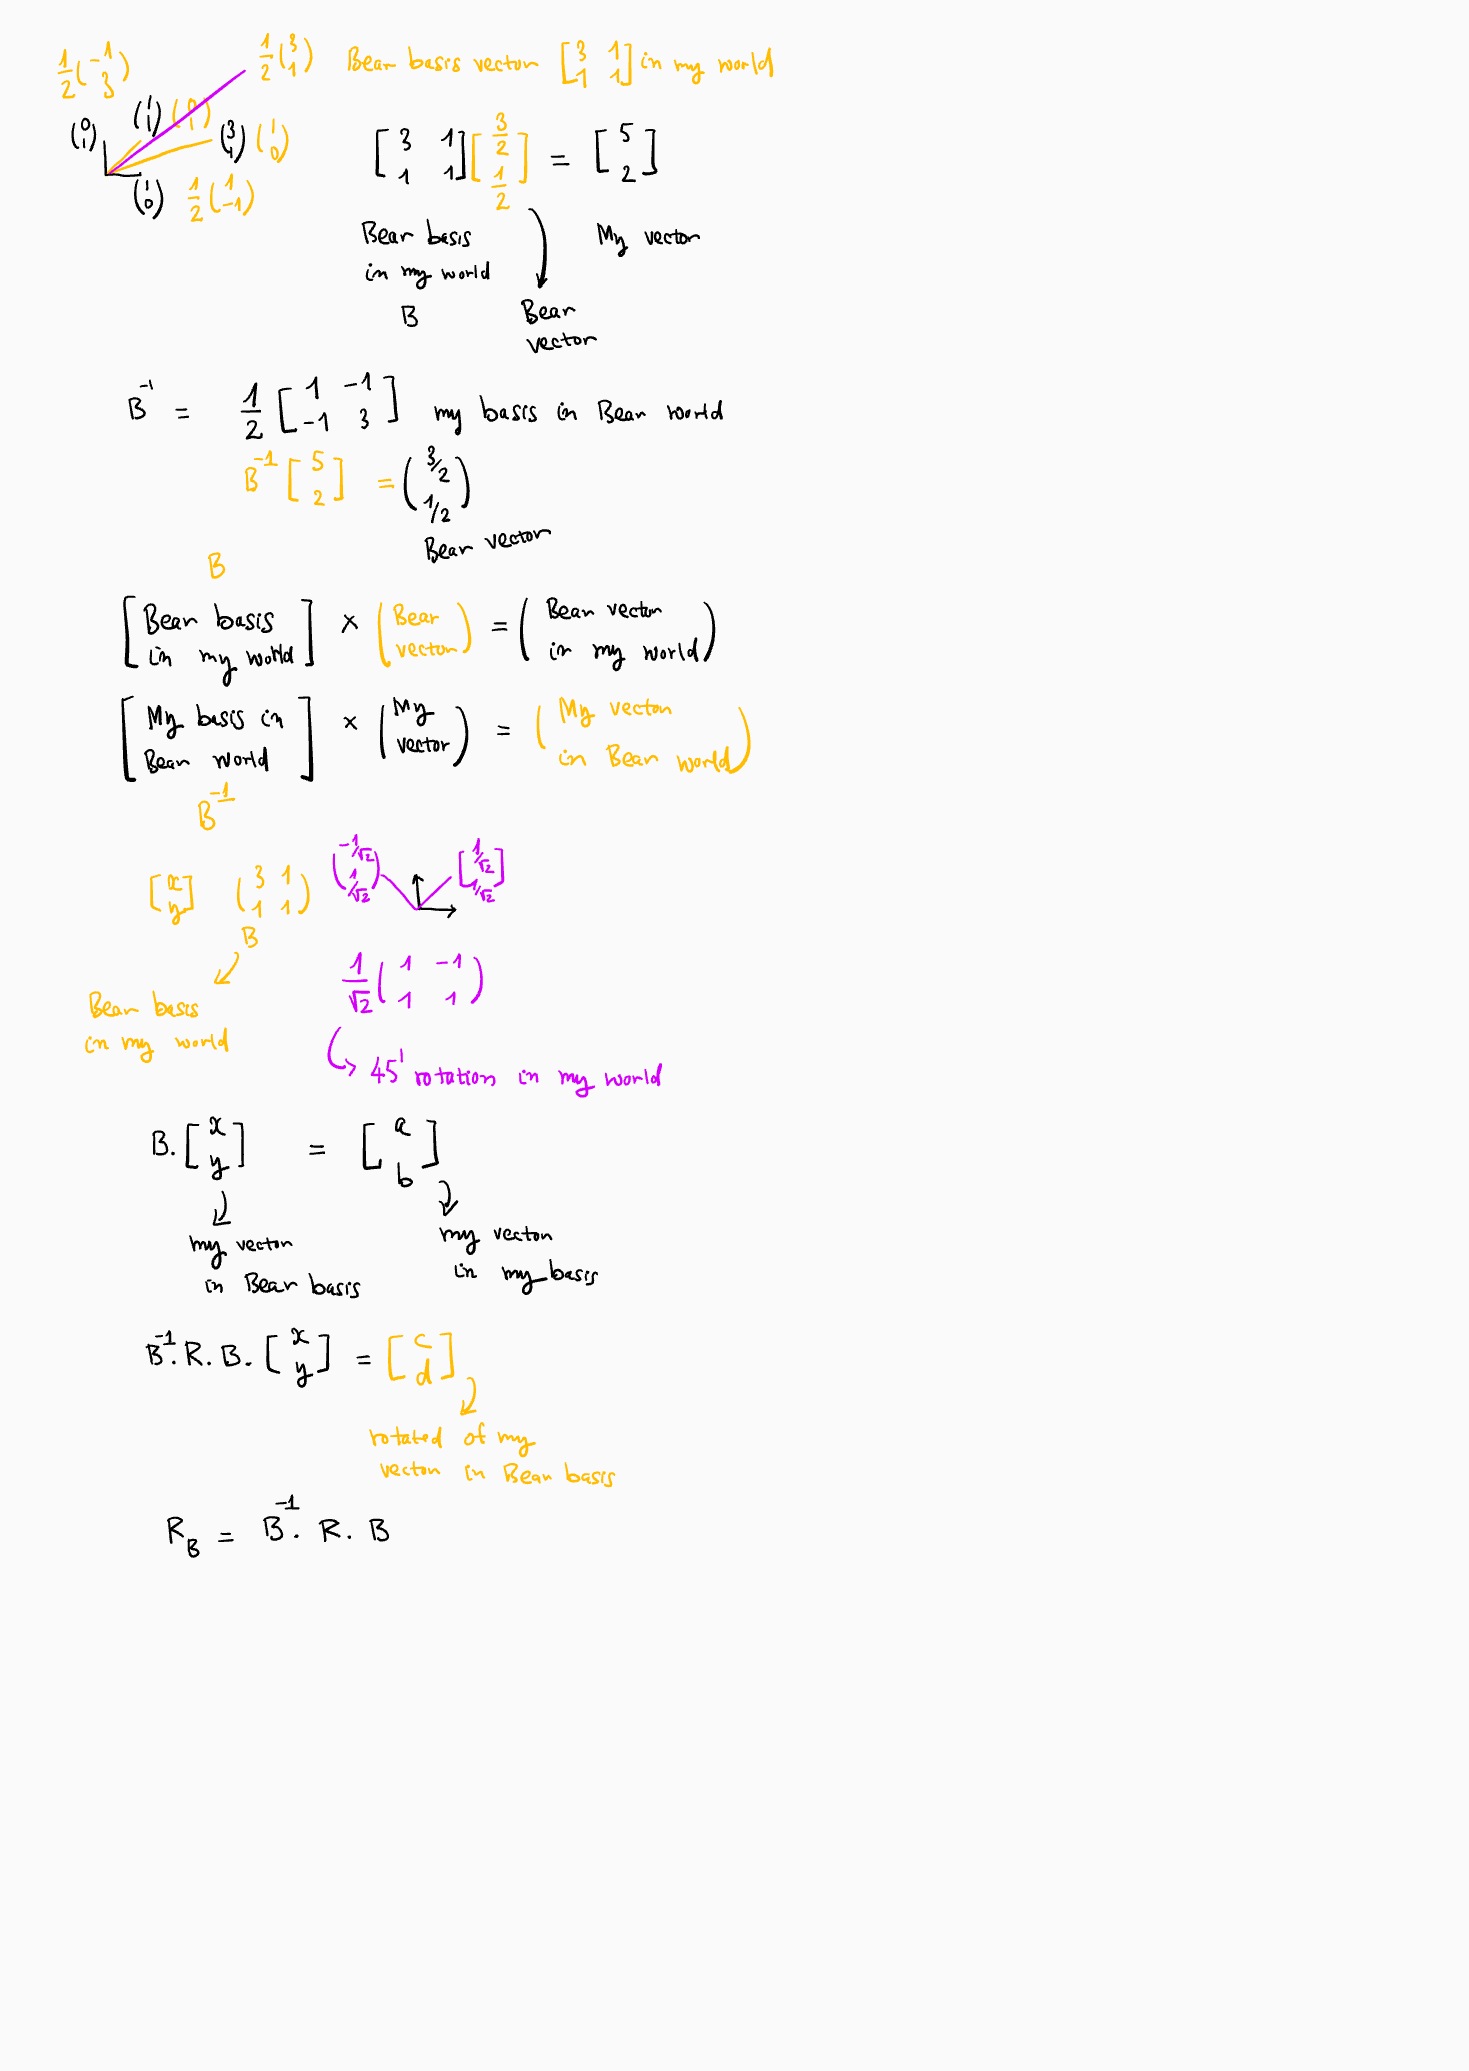 1/2 (-1 3) 1/2 (3 1) Bear basis vector [3 1 1 1] in my world
(0 1) (1 1) (0 1) (3 1) (1 0)
(1 0) 1/2 (1 -1)
[3 1 1 1] [3/2 1/2] = [5 2]
Bear basis in my world B
Bear vector
My vector
B^-1 = 1/2 [1 -1 -1 3] my basis in Bear world
B^-1 [5 2] = (3/2 1/2)
Bear vector
B
[Bear basis in my world] × (Bear vector) = (Bear vector in my world)
[My basis in Bear world] × (My vector) = (My vector in Bear world)
B^-1
[x y] (3 1 1 1) (-1/√2 1/√2) [1/√2 1/√2]
B
Bear basis
in my world
1/√2 (1 -1 1 1)
45' rotation in my world
B. [x y] = [a b]
my vector in Bear basis
my vector in my basis
B^-1. R. B. [x y] = [c d]
rotated of my
vector in Bear basis
R_B = B^-1. R. B